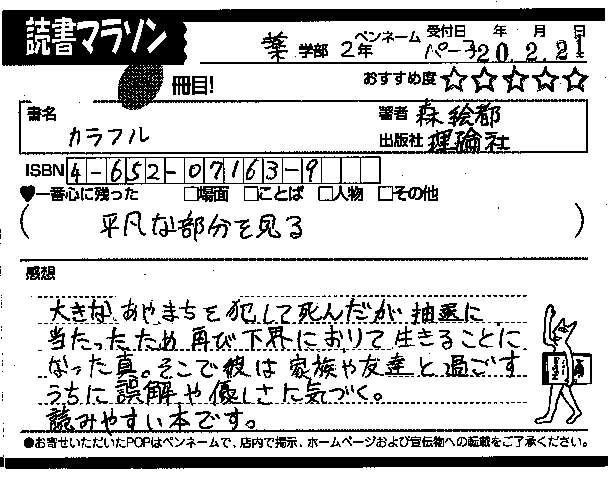 読書マラソン
薬 学部 2年 ペンネーム パー子 受付日 年 月 日 20.2.21
冊目! おすすめ度☆☆☆☆☆
書名 カラフル
著者 森絵都
出版社 理論社
ISBN 4-652-07163-9
♥一番心に残った □場面 □ことば □人物 □その他
(平凡な部分を見る)
感想
大きなあやまちを犯して死んだが抽選に
当たったため再び下界におりて生きることに
なった真。そこで彼は家族や友達と過ごす
うちに誤解や優しさに気づく。
読みやすい本です。
●お寄せいただいたPOPはペンネームで、店内で掲示、ホームページおよび宣伝物への転載をご了承ください。